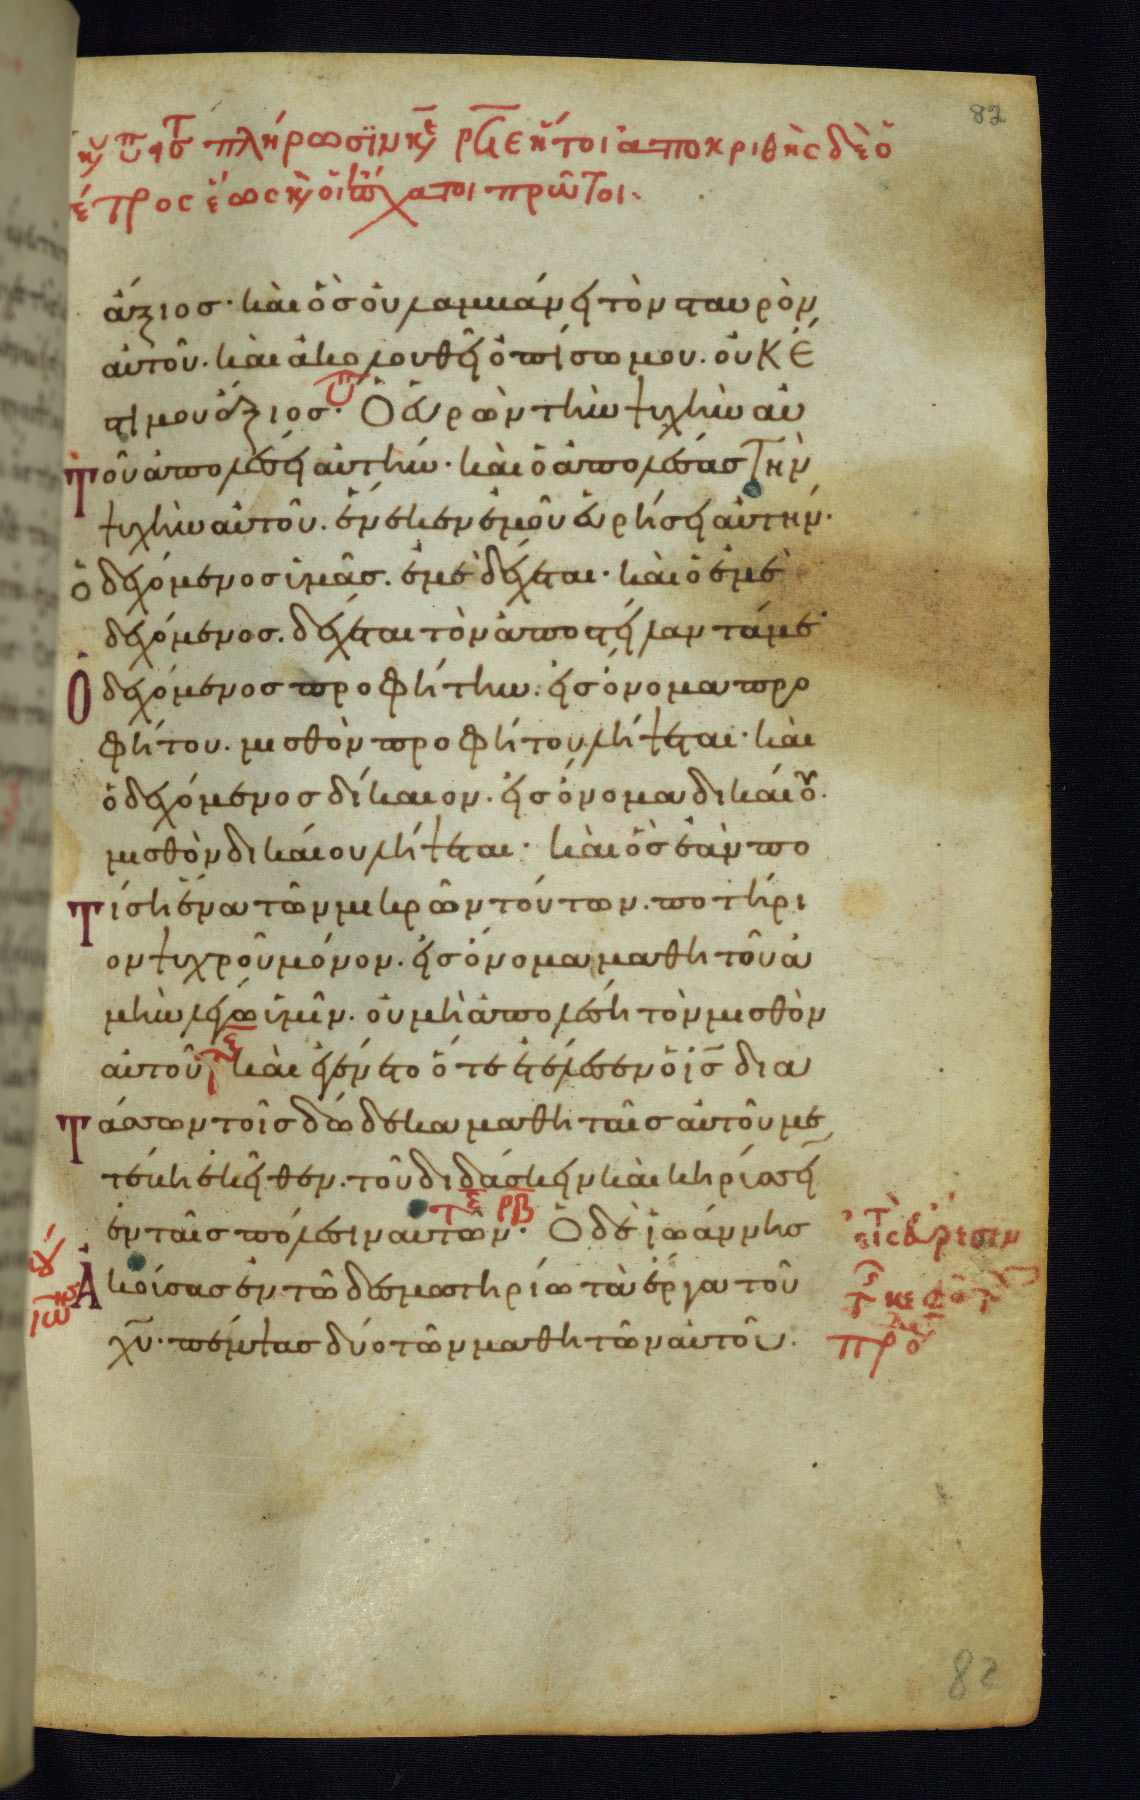 82
πλήρωσϊν κ, ρ̅ϛ̅ε ἤτοι ἀποκριθὴς δὲ ὁ
έτρος ἕως κ, οἱ ἔσχατοι πρῶτοι.
ἄξιοσ· καὶ ὃσ οὐ λαμμάνει τὸν σταυρὸν
αὐτοῦ. καὶ ἀκολουθεῖ ὀπίσω μου. οὐκ ἔ
στι μου ἄξιοσ· Ὁ εὑρὼν τὴν ψυχὴν αὐ
τοῦ ἀπολέσει αὐτήν· καὶ ὁ ἀπολέσασ τὴν
ψυχὴν αὐτοῦ. ἕνεκεν ἐμοῦ εὑρήσει αὐτην·
ὁ δεχόμενοσ ἱμᾶσ. ἐμὲ δέχεται· καὶ ὁ ἐμὲ
δεχόμενοσ. δέχεται τὸν ἀποστείλαντά με·
Ὁ δεχόμενοσ προφήτην. εἰσ ὄνομα προ
φήτου. μισθὸν προφήτου λήψεται· καὶ
ὁ δεχόμενοσ δίκαιον. εἰσ ὄνομα δικαίου.
μισθὸν δικαίου λήψεται· καὶ ὃσ ἐὰν πο
τίση ἕνα τῶν μικρῶν τούτων. ποτήρι
ον ψυχροῦ μόνον. εἰσ ὄνομα μαθητοῦ ἀ
μὴν λέγω ἱμῖν. οὐ μὴ ἀπολέση τὸν μισθὸν
αὐτοῦ καὶ ἐγένετο ὅτε ἐτέλεσεν ὁ ι̅σ̅ δια
τάσσων τοῖσ δώδεκα μαθηταῖσ αὐτοῦ με
τέβη ἐκεῖθεν. τοῦ διδάσκειν καὶ κηρίσσει
ἐν ταῖσ πόλεσιν αὐτῶν· ρ̅β̅ Ὁ δὲ ἰωάννησ
ἀκοίσασ ἐν τῶ δεσμωτηρίω τὰ ἔργα τοῦ
χ̅υ̅· πέμψασ δύο τῶν μαθητῶν αὐτοῦ.
82